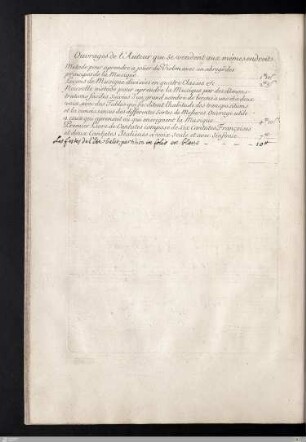 Ouvrages de l'Auteur qui se vendent aux mêmes endroits
Métode pour aprendre a jouer du Violon avec un abregé des
principes de la Musique
Leçons de Musique divisées en quatre Classes &c
Nouvelle métode pour aprendre la Musique par des démons-
trations faciles, suivies d'un grand nombre de leçons a une et a deux
voix, avec des Tables qui facilitent l'habitude des transpositions
et la connoissance des differentes sortes de Mesures. Ouvrage utile
a ceux qui aprenent ou qui enseignent la Musique
Premier Livre de Cantates composé de six Cantates Françoises
et deux Cantates Italienes a voix seule et avec Sinfonie
Les festes de en folio en blanc